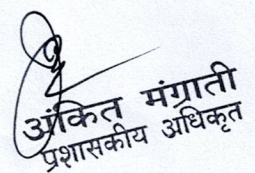 अंकित मंग्राती
प्रशासकीय अधिकृत